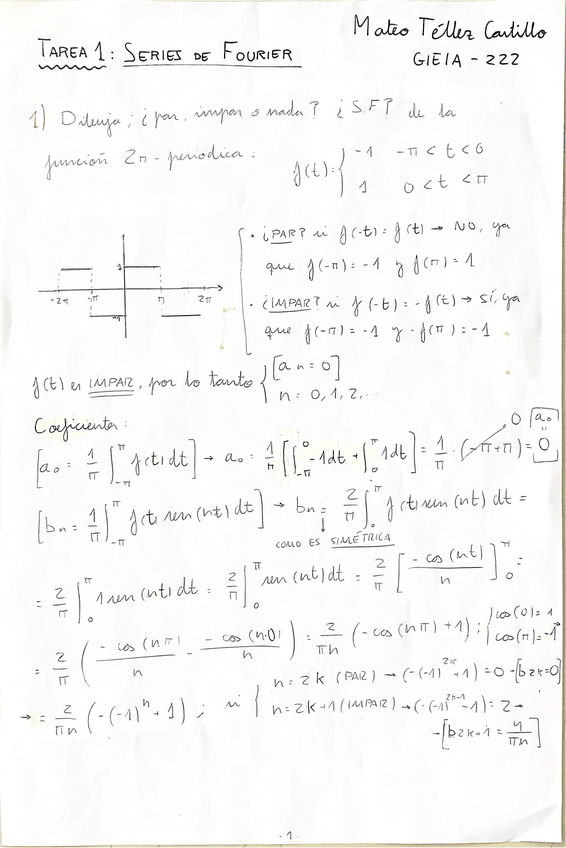 Mateo Téllez Castillo
TAREA 1: SERIES DE FOURIER
GIEIA - 222
1) Dibuja; ¿par, impar o nada? ¿S.F? de la
función 2π-periódica: f(t): { -1 -π < t < 0
1 0 < t < π
• ¿PAR? si f(-t) = f(t) → NO, ya
que f(-π) = -1 y f(π) = 1
1
-2π -π π 2π
-1
• ¿IMPAR? si f(-t) = -f(t) → SÍ, ya
que f(-π) = -1 y -f(π) = -1
f(t) es IMPAR, por lo tanto { [an = 0]
n = 0, 1, 2, ...
Coeficientes:
[a₀ = 1/π ∫_{-π}^{π} f(t) dt] → a₀ = 1/π [∫_{-π}^{0} -1dt + ∫_{0}^{π} 1dt] = 1/π · (-π+π) = 0
0 a₀ =
[bn = 1/π ∫_{-π}^{π} f(t) sen(nt) dt] → bn = 2/π ∫_{0}^{π} f(t) sen(nt) dt =
↓
COMO ES SIMÉTRICA
= 2/π ∫_{0}^{π} 1 sen(nt) dt = 2/π ∫_{0}^{π} sen(nt) dt = 2/π [-cos(nt)/n]_{0}^{π} =
= 2/π (-cos(nπ)/n - -cos(n·0)/n) = 2/πn (-cos(nπ) + 1); { cos(0) = 1
cos(π) = -1
→ = 2/πn (-(-1)^n + 1); si { n = 2k (PAR) → (-(-1)^{2k} + 1) = 0 → [b2k = 0]
n = 2k+1 (IMPAR) → (-(-1)^{2k+1} -1) = 2 →
→ [b2k+1 = 4/πn]
· 1 ·